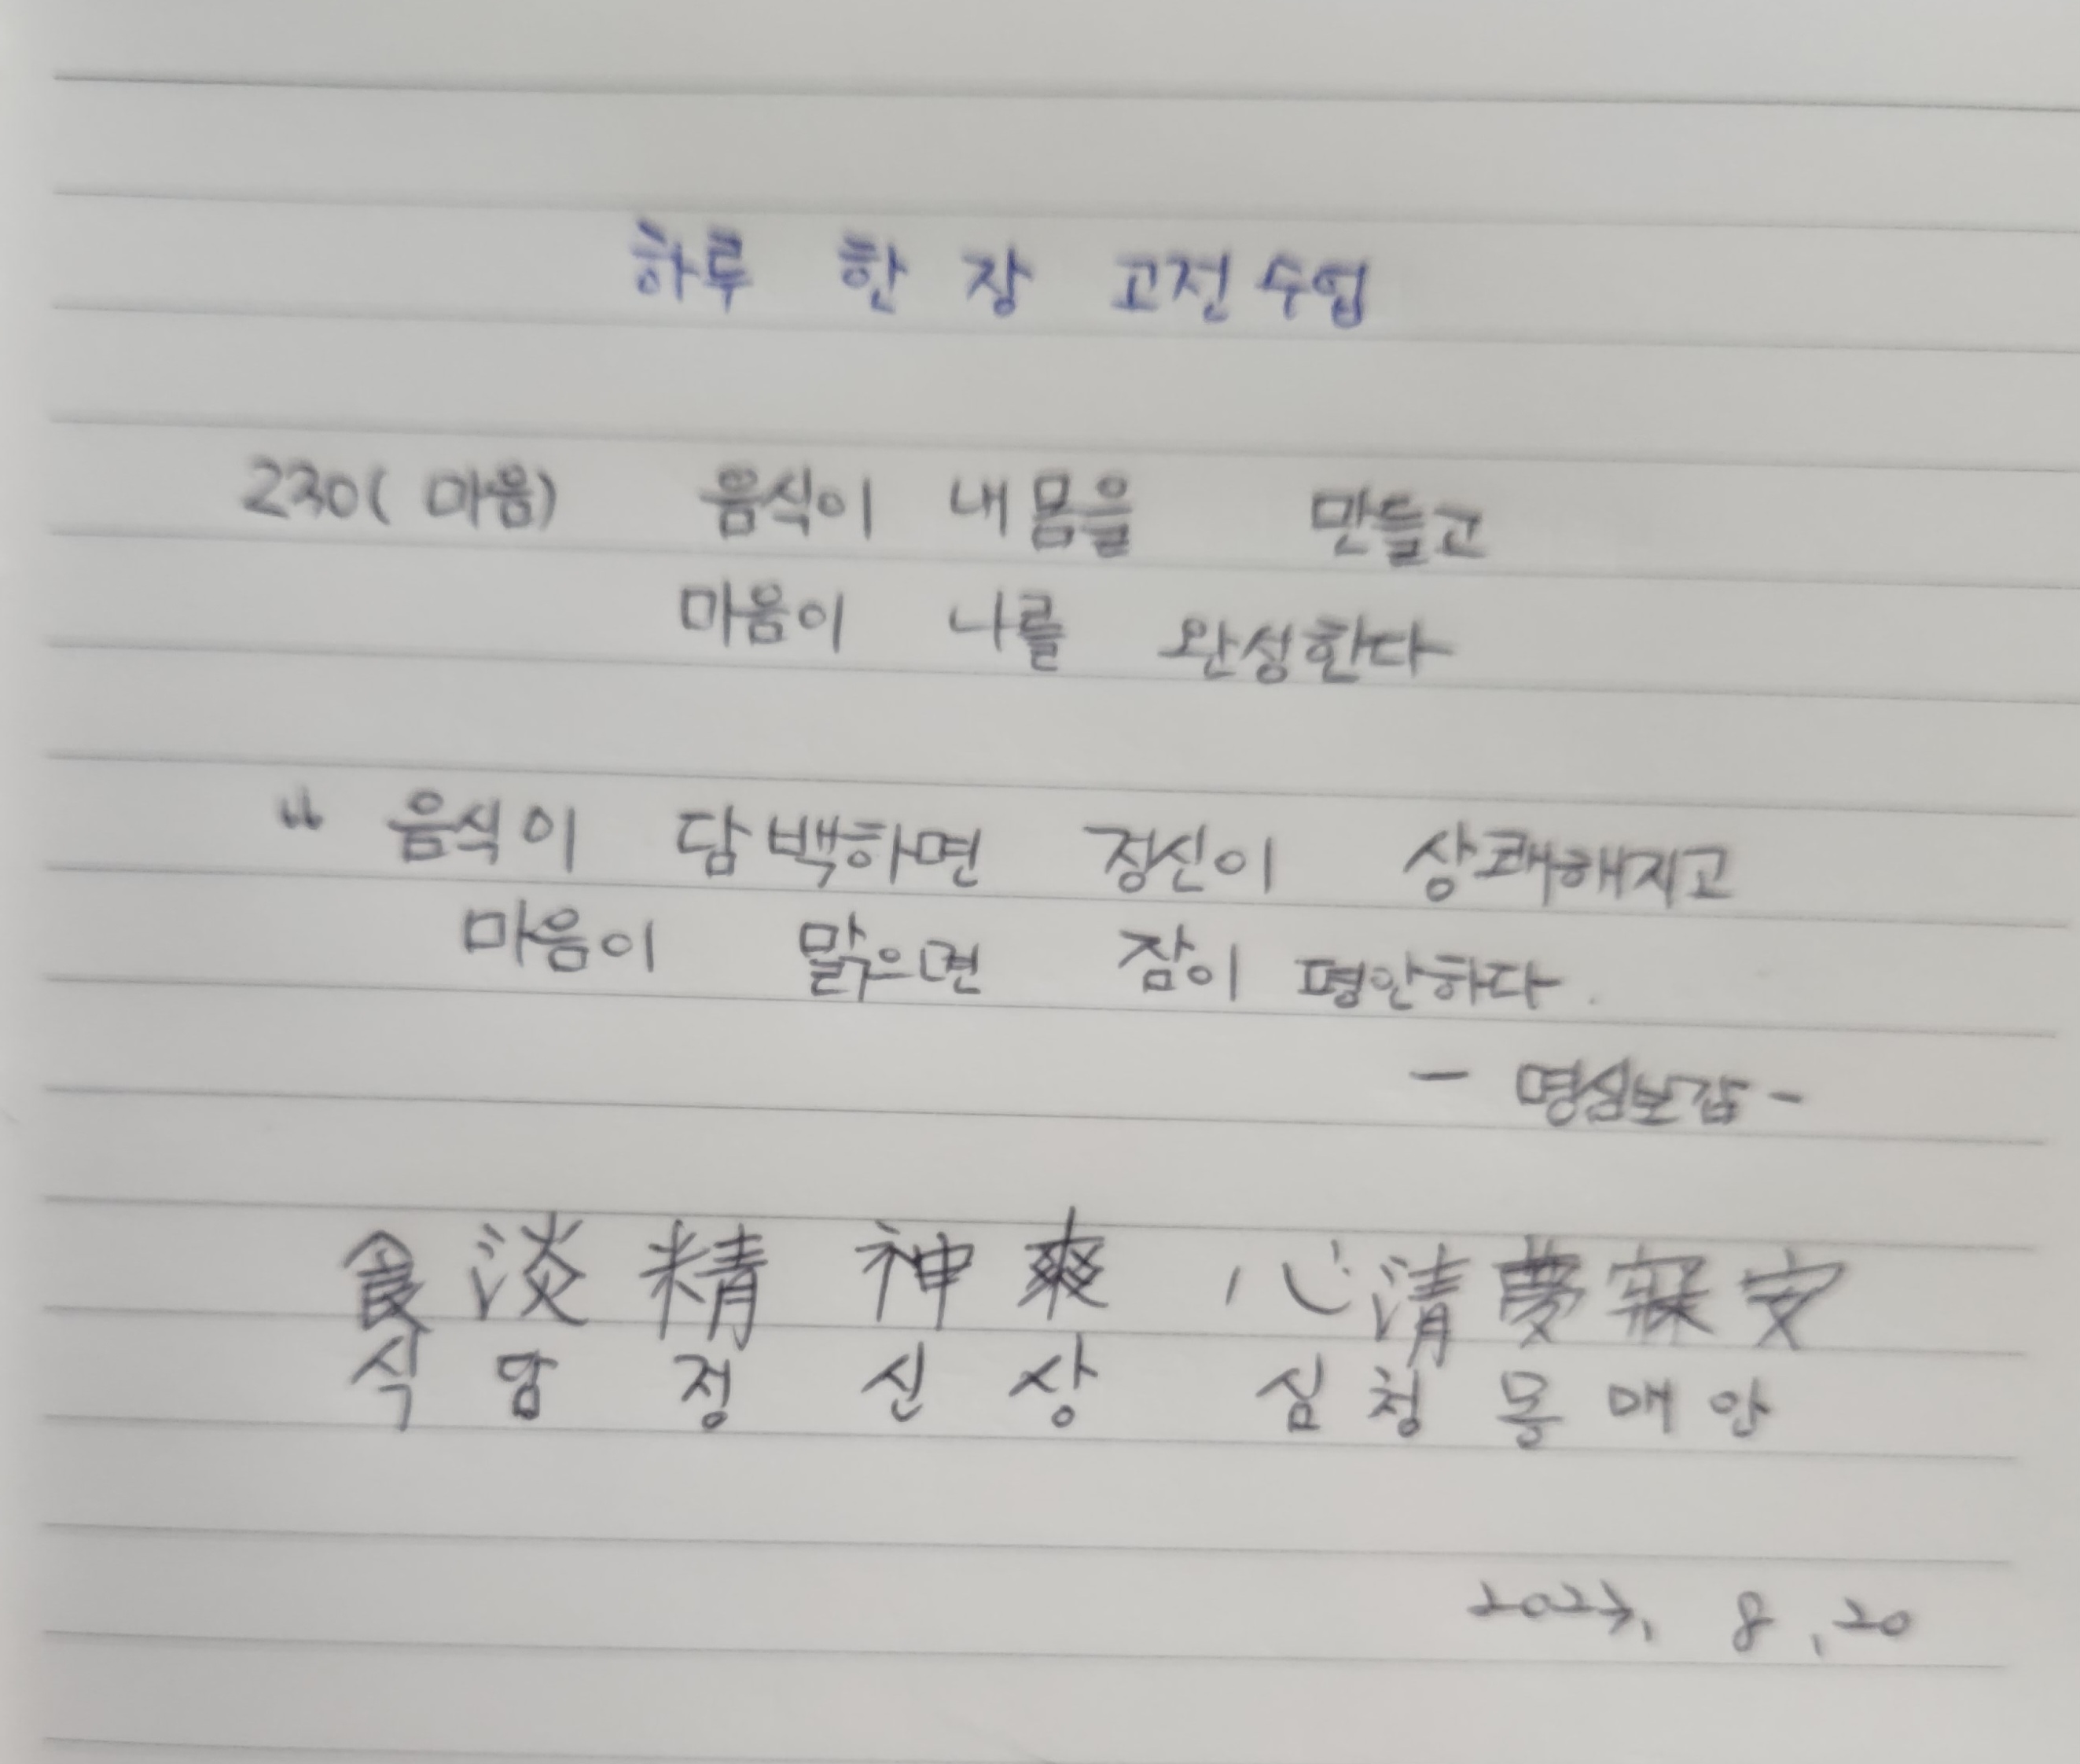 하루 한 장 고전수업
230( 마음) 음식이 내 몸을 만들고
마음이 나를 완성한다
“ 음식이 담백하면 정신이 상쾌해지고
마음이 맑으면 잠이 평안하다.
- 명심보감 -
食淡精神爽 心清夢寐安
식담정신상 심청몽매안
2023. 8. 20